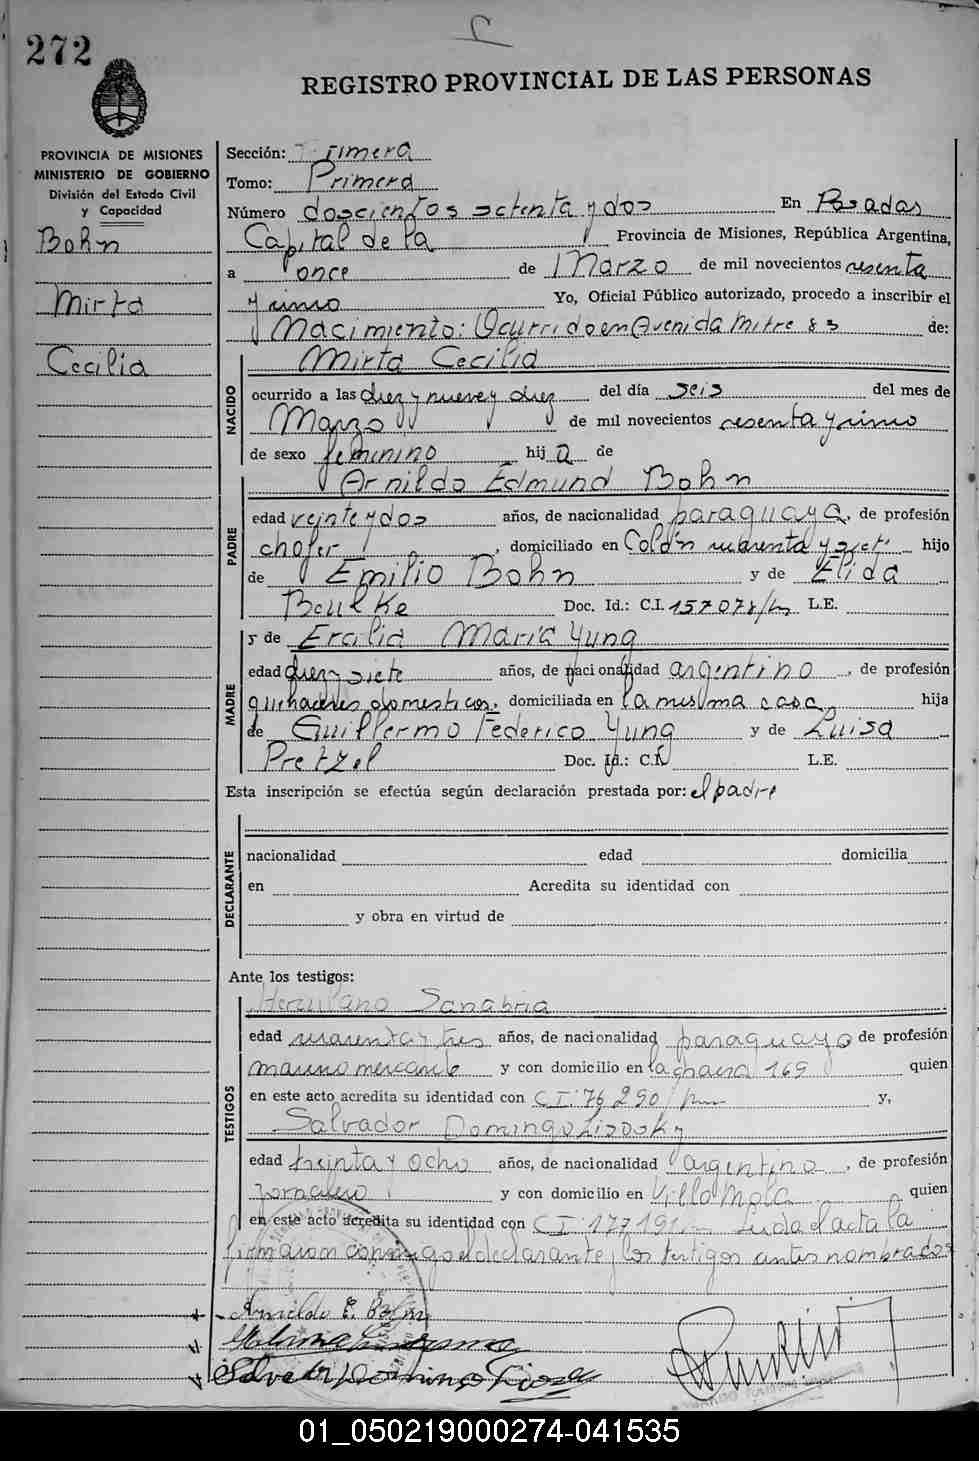 272
REGISTRO PROVINCIAL DE LAS PERSONAS
PROVINCIA DE MISIONES
MINISTERIO DE GOBIERNO
División del Estado Civil
y Capacidad
Bohn
Mirta
Cecilia
Sección: Primera
Tomo: Primera
Número doscientos setenta y dos En Posadas
Capital de la Provincia de Misiones, República Argentina,
a once de Marzo de mil novecientos sesenta
y uno Yo, Oficial Público autorizado, procedo a inscribir el
Nacimiento: Ocurrido en Avenida Mitre 83 de:
NACIDO
Mirta Cecilia
ocurrido a las diez y nueve y diez del día seis del mes de
Marzo de mil novecientos sesenta y uno
de sexo femenino hij a de
PADRE
Arnildo Edmund Bohn
edad veinte y dos años, de nacionalidad paraguaya, de profesión
chofer, domiciliado en Colón cuarenta y siete hijo
de Emilio Bohn y de Elida
Beulke Doc. Id.: C.I. 157078/ L.E.
MADRE
y de Ercilia María Yung
edad diez y siete años, de nacionalidad argentino, de profesión
quehaceres domesticos, domiciliada en la misma casa hija
de Guillermo Federico Yung y de Luisa
Pretzel Doc. Id.: C.I. L.E.
Esta inscripción se efectúa según declaración prestada por: el padre
DECLARANTE
nacionalidad edad domicilia
en Acredita su identidad con
y obra en virtud de
Ante los testigos:
TESTIGOS
Herculano Sanabria
edad cuarenta y tres años, de nacionalidad paraguayo de profesión
marino mercante y con domicilio en la chacra 169 quien
en este acto acredita su identidad con C I: 76290/ y,
Salvador Domingo Lizosky
edad treinta y ocho años, de nacionalidad argentino, de profesión
jornalero y con domicilio en Villa Mola quien
en este acto acredita su identidad con C I: 177191 Leida el acta la
firmaron conmigo el declarante y los testigos antes nombrados
Arnildo E. Bohn
Salvador Domingo
01_050219000274-041535